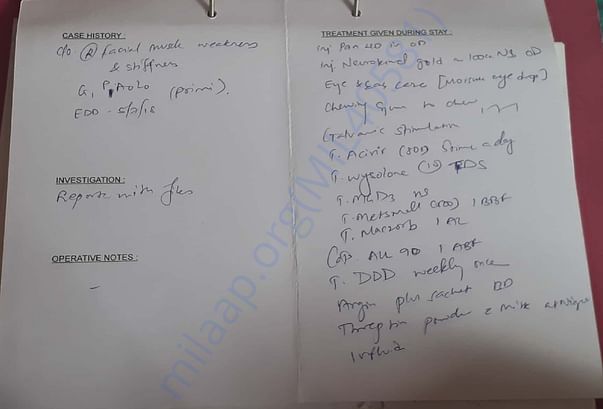 CASE HISTORY :
c/o (R) facial muscle weakness
& stiffness
G1 P1A0L0 (primi).
EDD - 5/2/18
INVESTIGATION :
Reports with files
OPERATIVE NOTES :
-
TREATMENT GIVEN DURING STAY :
inj Pan 40 iv OD
inj Neurokind gold in 100cc NS OD
Eye care [Moisture eye drop]
chewing gum to chew
Galvanic stimulation
T. Acivir (800) 5time a day
T. wysolone (10) TDS
T. MgD3
T. (500) 1 BBF
T. Macrorb 1
Cap. All 9D 1 ABF
T. DDD weekly once
Argin plus sachet BD
Threptin powder c milk
milaap.org(MIL405841)